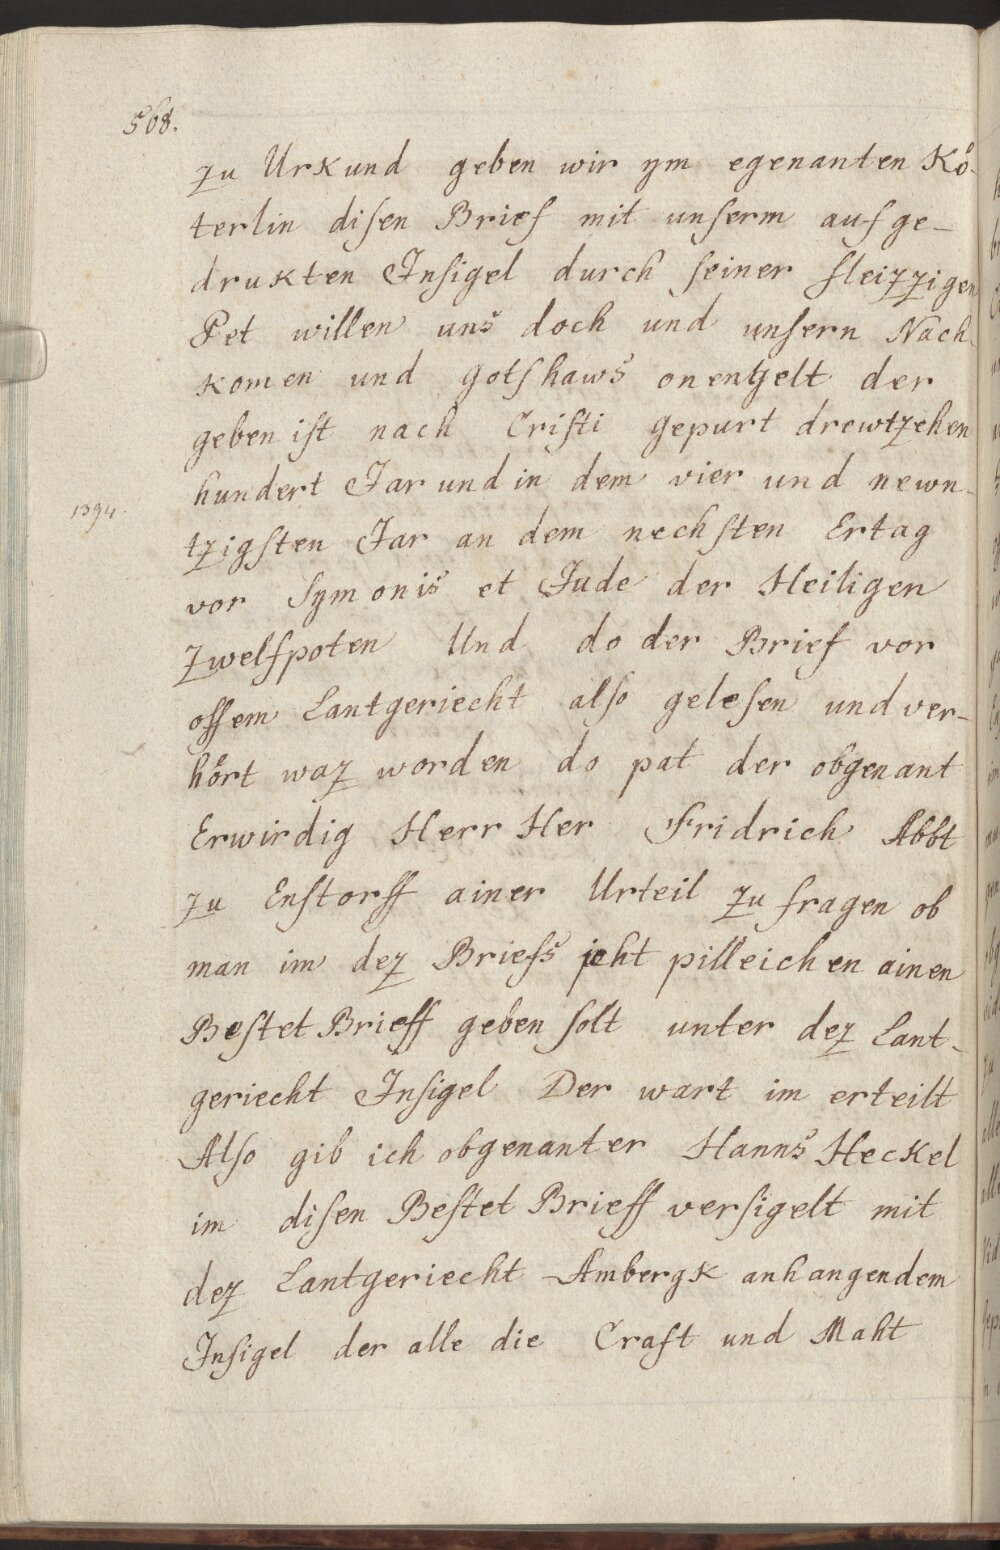 568.
zu Urkund geben wir ym egenanten Kö-
terlin disen Brief mit unserm aufge-
drukten Insigel durch seiner fleizzigen
Pet willen uns doch und unsern Nach-
komen und gotshaws onentzelt der
geben ist nach Cristi gepurt drewtzehen
hundert Jar und in dem vier und newn-
1394.
tzigsten Jar an dem nechsten Ertag
vor Symonis et Jude der Heiligen
zwelfpoten Und do der Brief vor
offem Lantgeriecht also gelesen und ver-
hört waz worden do pat der obgenant
Erwirdig Herr Her Fridrich Abbt
zu Enstorff ainer Urteil zu fragen ob
man im dez Briefs icht pilleichen ainen
Bestet Brieff geben solt unter dez Lant-
geriecht Insigel Der wart im erteilt
Also gib ich obgenanter Hanns Heckel
im disen Bestet Brieff versigelt mit
dez Lantgeriecht Ambergk anhangendem
Insigel der alle die Craft und Maht